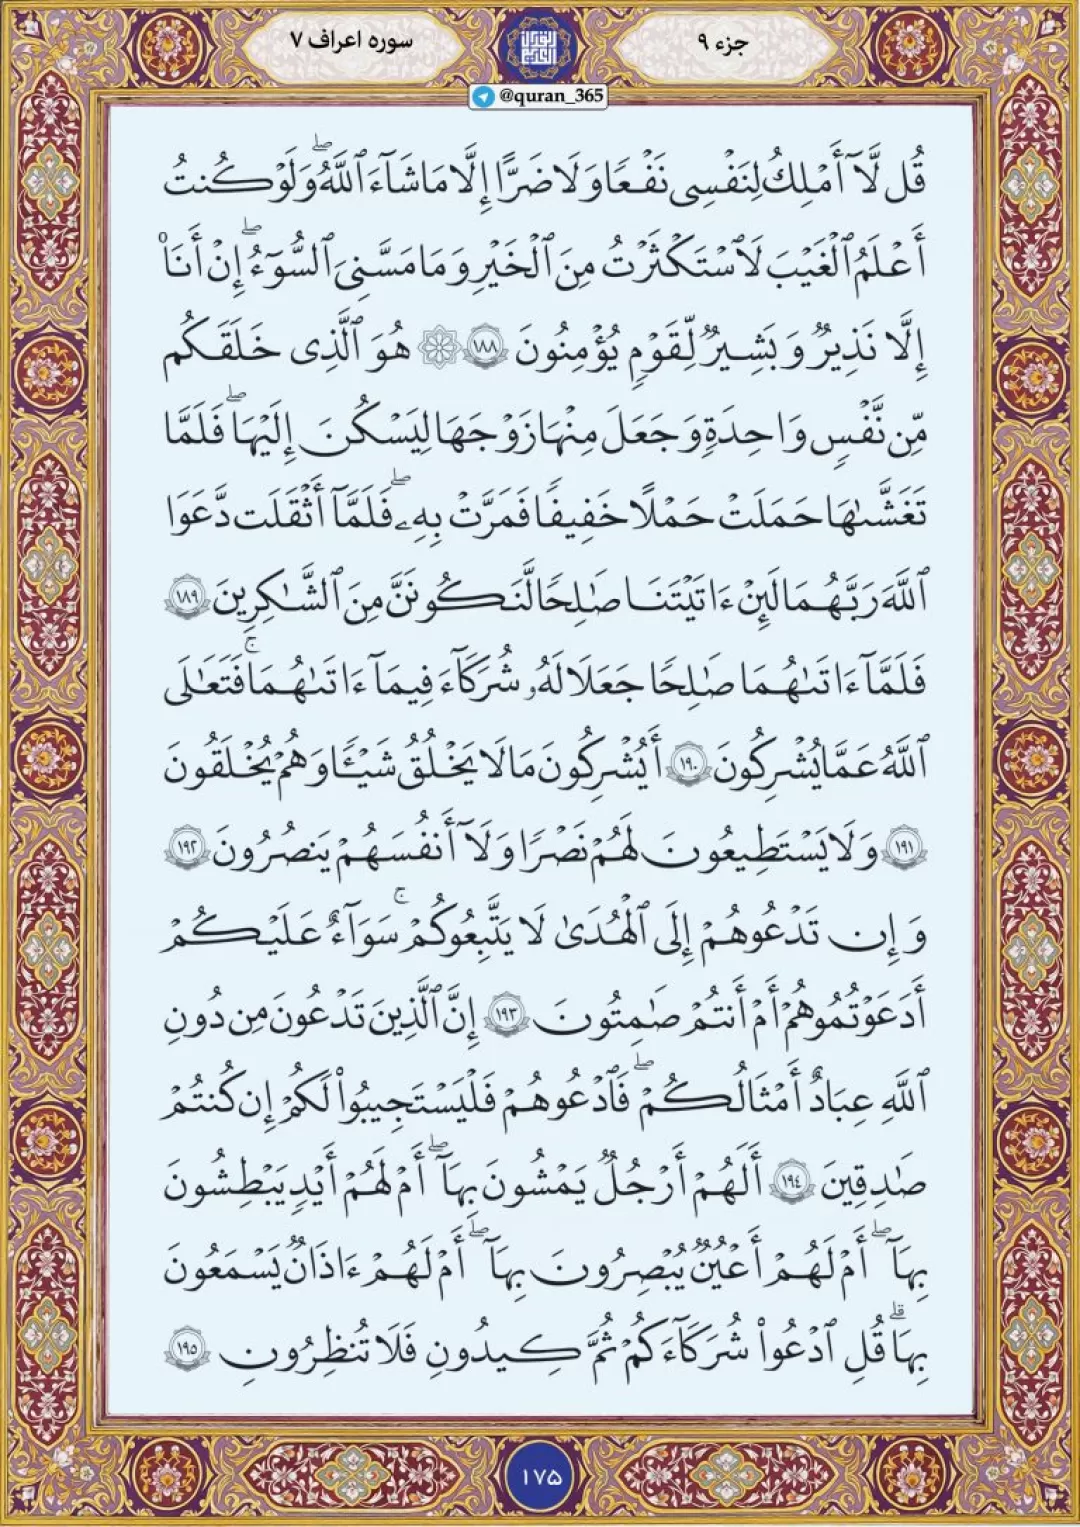 جزء ۹
سوره اعراف ۷
@quran_365
قُل لَّآ أَمْلِكُ لِنَفْسِى نَفْعًا وَلَا ضَرًّا إِلَّا مَا شَآءَ ٱللَّهُ ۖ وَلَوْ كُنتُ
أَعْلَمُ ٱلْغَيْبَ لَٱسْتَكْثَرْتُ مِنَ ٱلْخَيْرِ وَمَا مَسَّنِىَ ٱلسُّوٓءُ ۖ إِنْ أَنَا۠
إِلَّا نَذِيرٌ وَبَشِيرٌ لِّقَوْمٍ يُؤْمِنُونَ ١٨٨ ۞ هُوَ ٱلَّذِى خَلَقَكُم
مِّن نَّفْسٍ وَٰحِدَةٍ وَجَعَلَ مِنْهَا زَوْجَهَا لِيَسْكُنَ إِلَيْهَا ۖ فَلَمَّا
تَغَشَّىٰهَا حَمَلَتْ حَمْلًا خَفِيفًا فَمَرَّتْ بِهِۦ ۖ فَلَمَّآ أَثْقَلَت دَّعَوَا
ٱللَّهَ رَبَّهُمَا لَئِنْ ءَاتَيْتَنَا صَٰلِحًا لَّنَكُونَنَّ مِنَ ٱلشَّٰكِرِينَ ١٨٩
فَلَمَّآ ءَاتَىٰهُمَا صَٰلِحًا جَعَلَا لَهُۥ شُرَكَآءَ فِيمَآ ءَاتَىٰهُمَا ۚ فَتَعَٰلَى
ٱللَّهُ عَمَّا يُشْرِكُونَ ١٩٠ أَيُشْرِكُونَ مَا لَا يَخْلُقُ شَيْـًٔا وَهُمْ يُخْلَقُونَ
١٩١ وَلَا يَسْتَطِيعُونَ لَهُمْ نَصْرًا وَلَآ أَنفُسَهُمْ يَنصُرُونَ ١٩٢
وَإِن تَدْعُوهُمْ إِلَى ٱلْهُدَىٰ لَا يَتَّبِعُوكُمْ ۚ سَوَآءٌ عَلَيْكُمْ
أَدَعَوْتُمُوهُمْ أَمْ أَنتُمْ صَٰمِتُونَ ١٩٣ إِنَّ ٱلَّذِينَ تَدْعُونَ مِن دُونِ
ٱللَّهِ عِبَادٌ أَمْثَالُكُمْ ۖ فَٱدْعُوهُمْ فَلْيَسْتَجِيبُوا۟ لَكُمْ إِن كُنتُمْ
صَٰدِقِينَ ١٩٤ أَلَهُمْ أَرْجُلٌ يَمْشُونَ بِهَآ ۖ أَمْ لَهُمْ أَيْدٍ يَبْطِشُونَ
بِهَآ ۖ أَمْ لَهُمْ أَعْيُنٌ يُبْصِرُونَ بِهَآ ۖ أَمْ لَهُمْ ءَاذَانٌ يَسْمَعُونَ
بِهَا ۗ قُلِ ٱدْعُوا۟ شُرَكَآءَكُمْ ثُمَّ كِيدُونِ فَلَا تُنظِرُونِ ١٩٥
۱۷۵